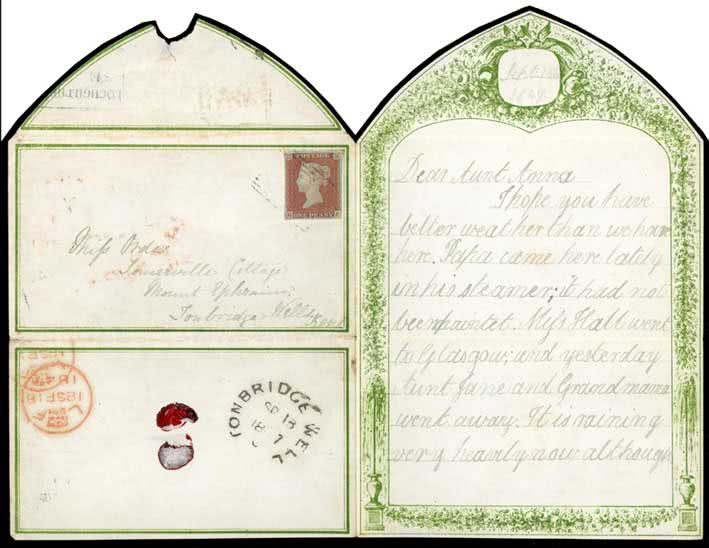 POSTAGE
ONE PENNY
Miss Orde
Somerville Cottage
Mount Ephraim
Tonbridge Wells
Kent
18SP18
184
TONBRIDGE WELL
SP 18
1847
Sept
1847
Dear Aunt Anna
I hope you have
better weather than we have
here. Papa came here lately
in his steamer; it had not
been paintet. Miss Hall went
to Glasgow; and yesterday
Aunt Jane and Grand mama
went away. It is raining
very heavily now although